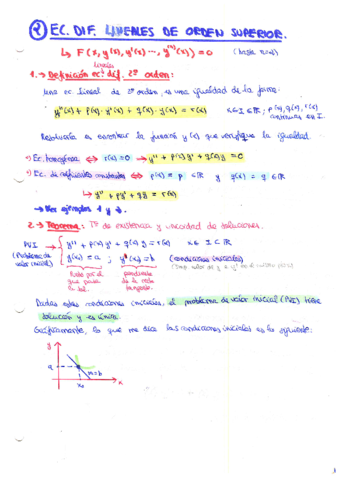 ② EC. DIF. LINEALES DE ORDEN SUPERIOR.
↳ F(x, y(x), y'(x), ..., yⁿ⁾(x)) = 0 (hasta n=2)
lineales
1.→ Definición ec. dif. 2º orden:
Una ec. lineal de 2º orden, es una igualdad de la forma:
y''(x) + p(x)·y'(x) + q(x)·y(x) = r(x) x ∈ I ⊆ ℝ; p(x), q(x), r(x)
continuas en I.
Resolverla es encontrar la función y(x) que verifique la igualdad.
•) Ec. homogénea ⇔ r(x)=0 → y'' + p(x)y' + q(x)y = 0
•) Ec. de coeficientes constantes ⇔ p(x) = p ∈ ℝ y q(x) = q ∈ ℝ
↳ y'' + py' + qy = r(x)
→ Ver ejemplos 1 y 2.
2.→ Teorema: Tª de existencia y unicidad de soluciones.
PVI → { y'' + p(x)y' + q(x)y = r(x) x ∈ I ⊂ ℝ
(Problema de valor inicial) y(x₀) = a ; y'(x₀) = b (condiciones iniciales)
Punto por el que pasa la sol.
pendiente de la recta tangente.
Dadas estas condiciones iniciales, el problema de valor inicial (PVI) tiene
solución y es única.
Gráficamente, lo que me dan las condiciones iniciales es lo siguiente:
y
a
m=b
x₀
x